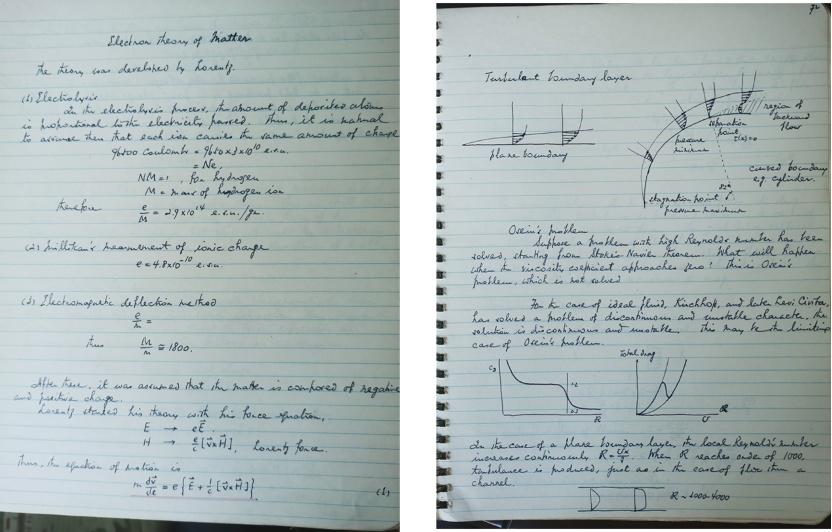 Electron theory of Matter
The theory was developed by Lorentz.
(1) Electrolysis
In the electrolysis process, the amount of deposited atoms
is proportional to the electricity passed. Thus, it is natural
to assume then that each ion carries the same amount of charge
96500 Coulombs = 9650 x 3 x 10^10 e.s.u.
= Ne,
NM = 1, for hydrogen
M = mass of hydrogen ion
therefore e/M = 2.9 x 10^14 e.s.u./gr.
(2) Millikan's measurement of ionic charge
e = 4.8 x 10^-10 e.s.u.
(3) Electromagnetic deflection method
e/m =
thus M/m ≅ 1800.
After these, it was assumed that the matter is composed of negative
and positive charge.
Lorentz started his theory with his force equation,
E → eE⃗.
H → e/c [v⃗xH⃗], Lorentz force.
Thus, the equation of motion is
m dv⃗/dt = e{E⃗ + 1/c [v⃗xH⃗]}
(1)
72
Turbulent boundary layer
plane boundary
region of
backward
flow
separation
point
pressure
minimum
curved boundary
e.g. cylinder.
stagnation point
pressure maximum
Oseen's problem
Suppose a problem with high Reynold's number has been
solved, starting from Stoke's Navier theorem. What will happen
when the viscosity coefficient approaches zero? This is Oseen's
problem, which is not solved
For the case of ideal fluid, Kirchhoff, and late Levi Civita,
has solved a problem of discontinuous and unstable character. The
solution is discontinuous and unstable. This may be the limiting
case of Oseen's problem.
Total drag
R
U
In the case of a plane boundary layer, the local Reynold's number
increases continuously R = Ux/ν. When R reaches order of 1000,
turbulance is produced, just as in the case of flow thru a
channel.
R ~ 1000-4000